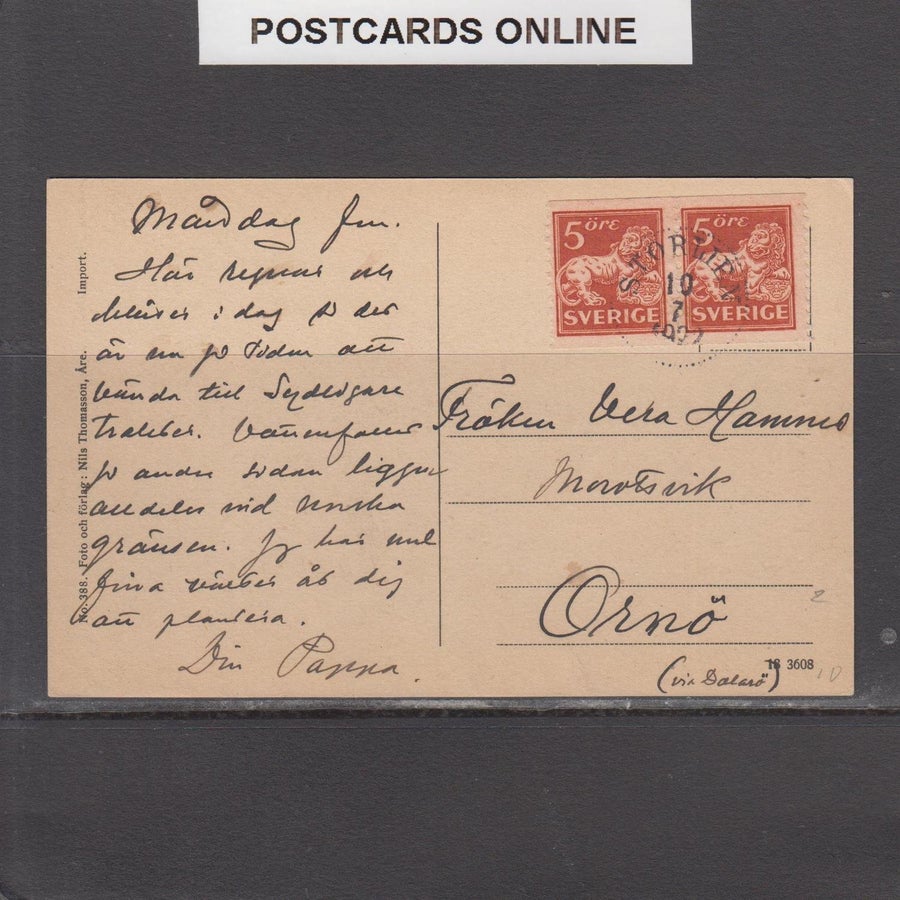 POSTCARDS ONLINE
Måndag fm.
Här regnar och
blåser i dag så det
är nu på tiden att
vända till Sydligare
trakter.
på andra sidan ligger
alldeles vid norska
gränsen. Jg har
fina växter åt dig
att plantera.
Din Pappa.
No. 388. Foto och förlag: Nils Thomasson, Åre. Import.
5 ÖRE
SVERIGE
5 ÖRE
SVERIGE
STORLIEN
10
7
Fröken Vera Hammar
Ornö
(via Dalarö)
18 3608